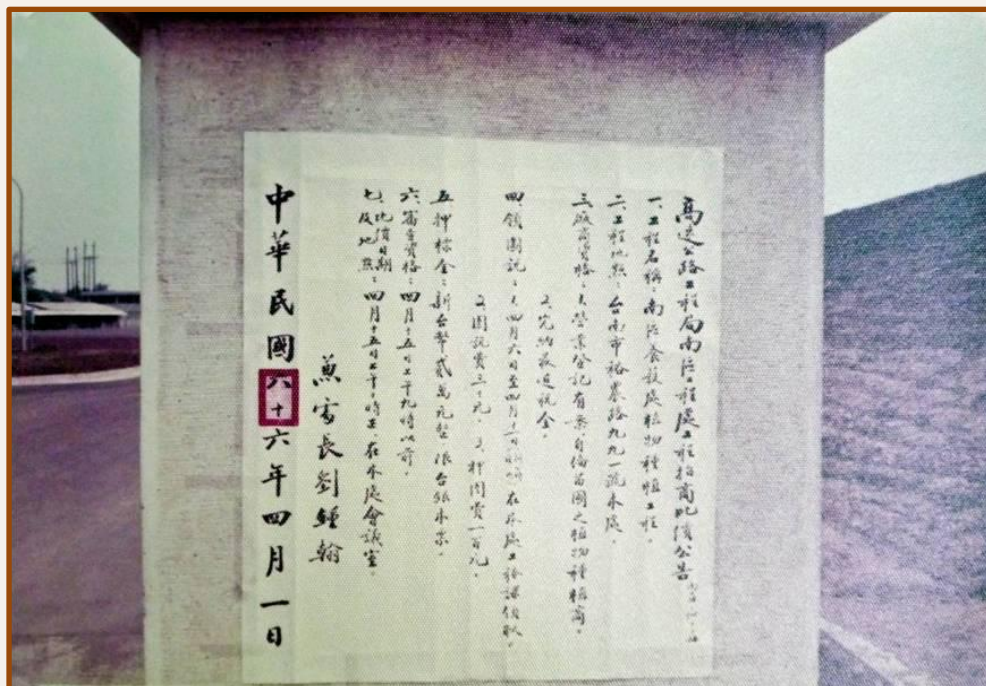 高速公路工程局南區工程處工程招商比價公告
一、工程名稱：南區養護處植物種植工程。
二、工程地點：台南市裕農路九九一號本處。
三、廠商資格：1.營業登記有案自備苗圃之植物種植商。
2.完納最近稅金。
四、領圖說：1.四月六日至四月 日 在本處工務課領取。
2.圖說費三十元。3.押圖費一百元。
五、押標金：新台幣貳萬元整 限台銀本票。
六、審查資格：四月十五日上午九時以前。
七、比價日期及地點：四月十五日上午十時正，在本處會議室。
兼處長劉鍾翰
中華民國六十六年四月一日